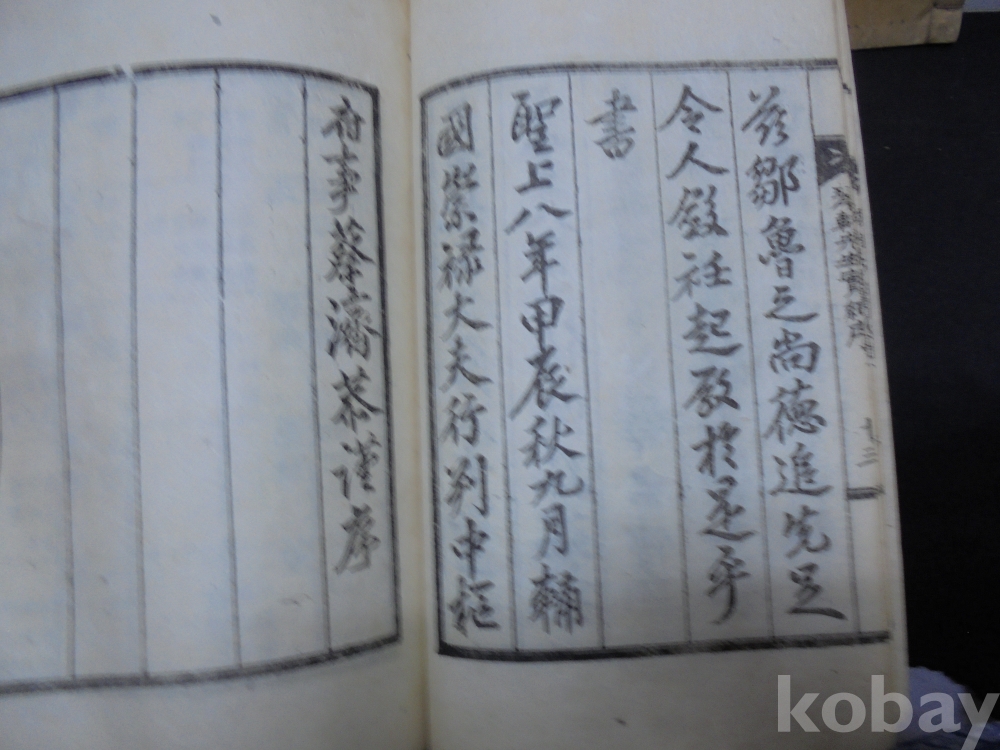 玆鄒魯之尚德追先足
令人斂衽起敬於是乎
書
聖上八年甲辰秋九月輔
國崇禄大夫行判中樞
府事蔡濟恭謹序
kobay